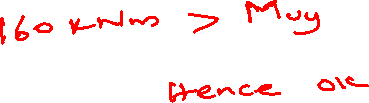 160 kNm > Muy
Hence ok